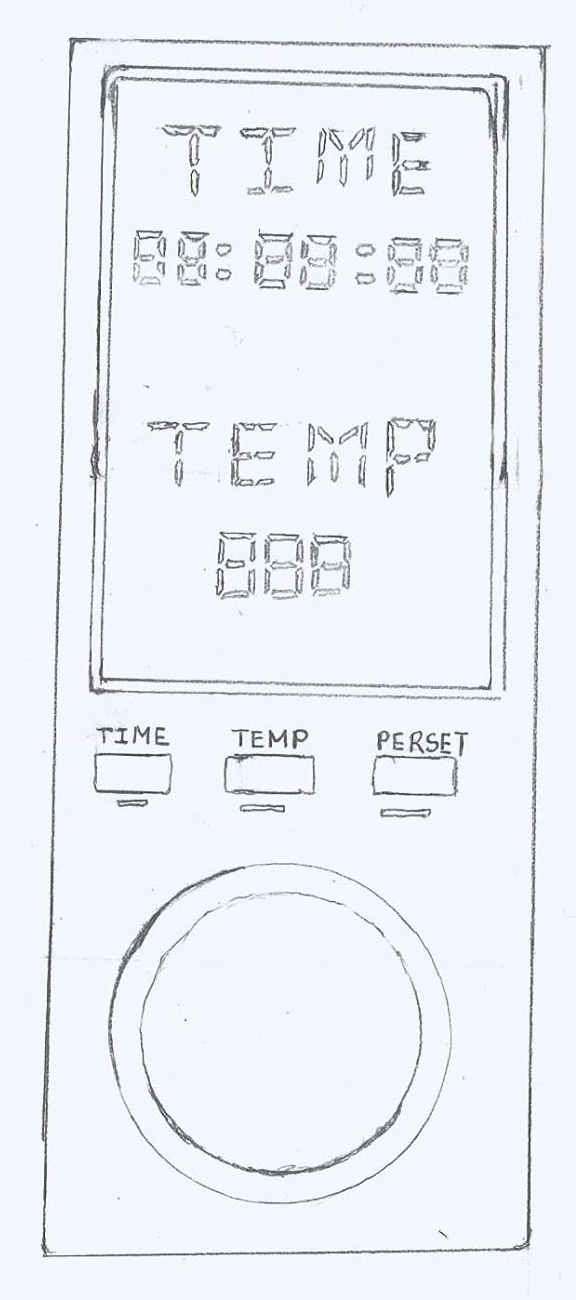 TIME
88:88:88
TEMP
888
TIME TEMP PERSET